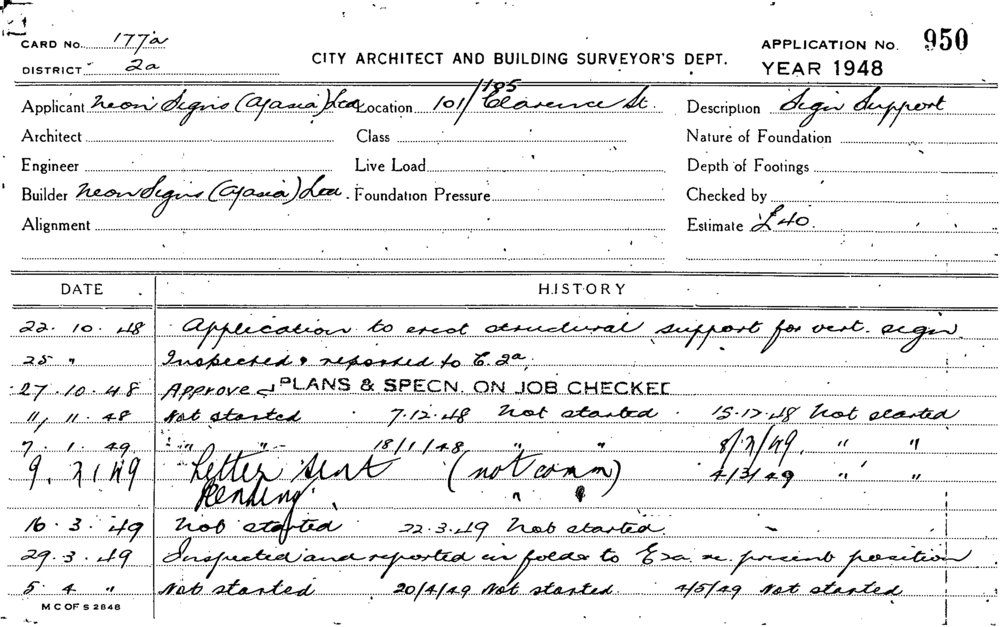 CARD NO. 177a
DISTRICT 2a
CITY ARCHITECT AND BUILDING SURVEYOR'S DEPT.
APPLICATION NO. 950
YEAR 1948
Applicant Neon Signs (A/asia) Ltd Location 101/105 Clarence St. Description Sign Support
Architect Class Nature of Foundation
Engineer Live Load Depth of Footings
Builder Neon Signs (A/asia) Ltd. Foundation Pressure Checked by
Alignment Estimate £40.
DATE HISTORY
22.10.48 Application to erect structural support for vert. sign
25 " Inspected & reported to E.2a.
27.10.48 Approved PLANS & SPECN. ON JOB CHECKED
11.11.48 Not started 7.12.48 Not started 15.12.48 Not started
7.1.49 " " 18/1/48 " " 8/2/49 " "
9.2/49 Letter sent (not comm) 4/3/49 " "
Pending " "
16.3.49 Not started 22.3.49 Not started
29.3.49 Inspected and reported in folder to E2a re present position
5.4 " Not started 20/4/49 Not started 4/5/49 Not started
M C OF S 2848